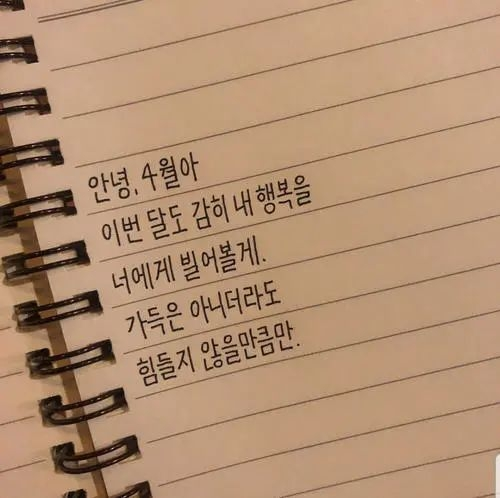 안녕, 4월아
이번 달도 감히 내 행복을
너에게 빌어볼게.
가득은 아니더라도
힘들지 않을만큼만.